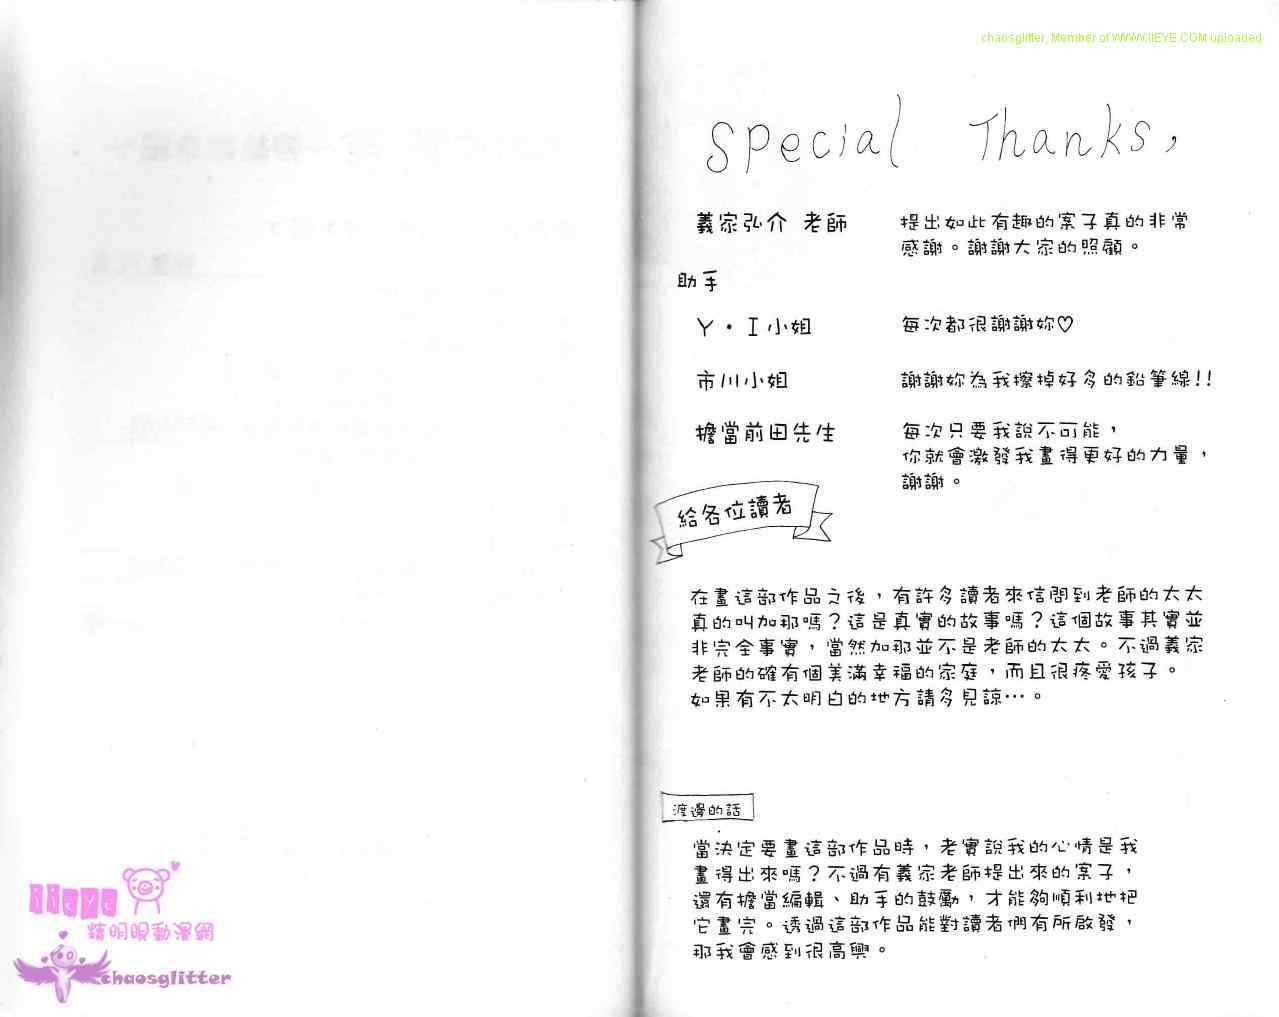 chaosglitter, Member of WWW.IIEYE.COM uploaded
Special Thanks,
義家弘介 老師 提出如此有趣的案子真的非常
感謝。謝謝大家的照顧。
助手
Y・I小姐 每次都很謝謝妳♡
市川小姐 謝謝妳為我擦掉好多的鉛筆線!!
擔當前田先生 每次只要我說不可能，
你就會激發我畫得更好的力量，
謝謝。
給各位讀者
在畫這部作品之後，有許多讀者來信問到老師的太太
真的叫加那嗎？這是真實的故事嗎？這個故事其實並
非完全事實，當然加那並不是老師的太太。不過義家
老師的確有個美滿幸福的家庭，而且很疼愛孩子。
如果有不太明白的地方請多見諒…。
渡邊的話
當決定要畫這部作品時，老實說我的心情是我
畫得出來嗎？不過有義家老師提出來的案子，
還有擔當編輯、助手的鼓勵，才能夠順利地把
它畫完。透過這部作品能對讀者們有所啟發，
那我會感到很高興。
iieye
精明眼動漫網
chaosglitter